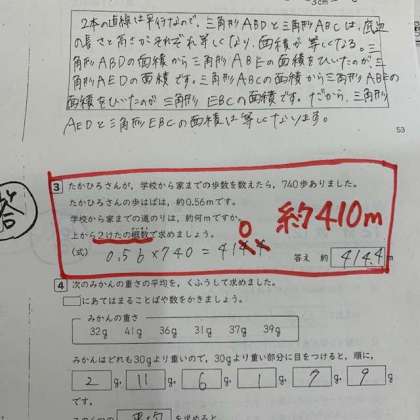 3cm
2本の直線は平行なので、三角形ABDと三角形ABCは、底辺
の長さと高さがそれぞれ等しくなり、面積が等しくなる。三
角形ABDの面積から三角形ABEの面積をひいたのが三
角形AEDの面積です。三角形ABCの面積から三角形ABEの
面積をひいたのが三角形EBCの面積です。だから、三角形
AEDと三角形EBCの面積は等しくなります。
53
3 たかひろさんが、学校から家までの歩数を数えたら、740歩ありました。
たかひろさんの歩はばは、約0.56mです。
学校から家までの道のりは、約何mですか。
上から2けたの概数で求めましょう。
約410m
0
(式) 0.56×740=414.4
答え 約 414.4 m
答
4 次のみかんの重さの平均を、くふうして求めました。
□にあてはまることばや数をかきましょう。
みかんの重さ
32g 41g 36g 31g 37g 39g
みかんはどれも30gより重いので、30gより重い部分に目をつけると、順に、
2 g, 11 g, 6 g, 1 g, 7 g, 9 g
です。
を求めると